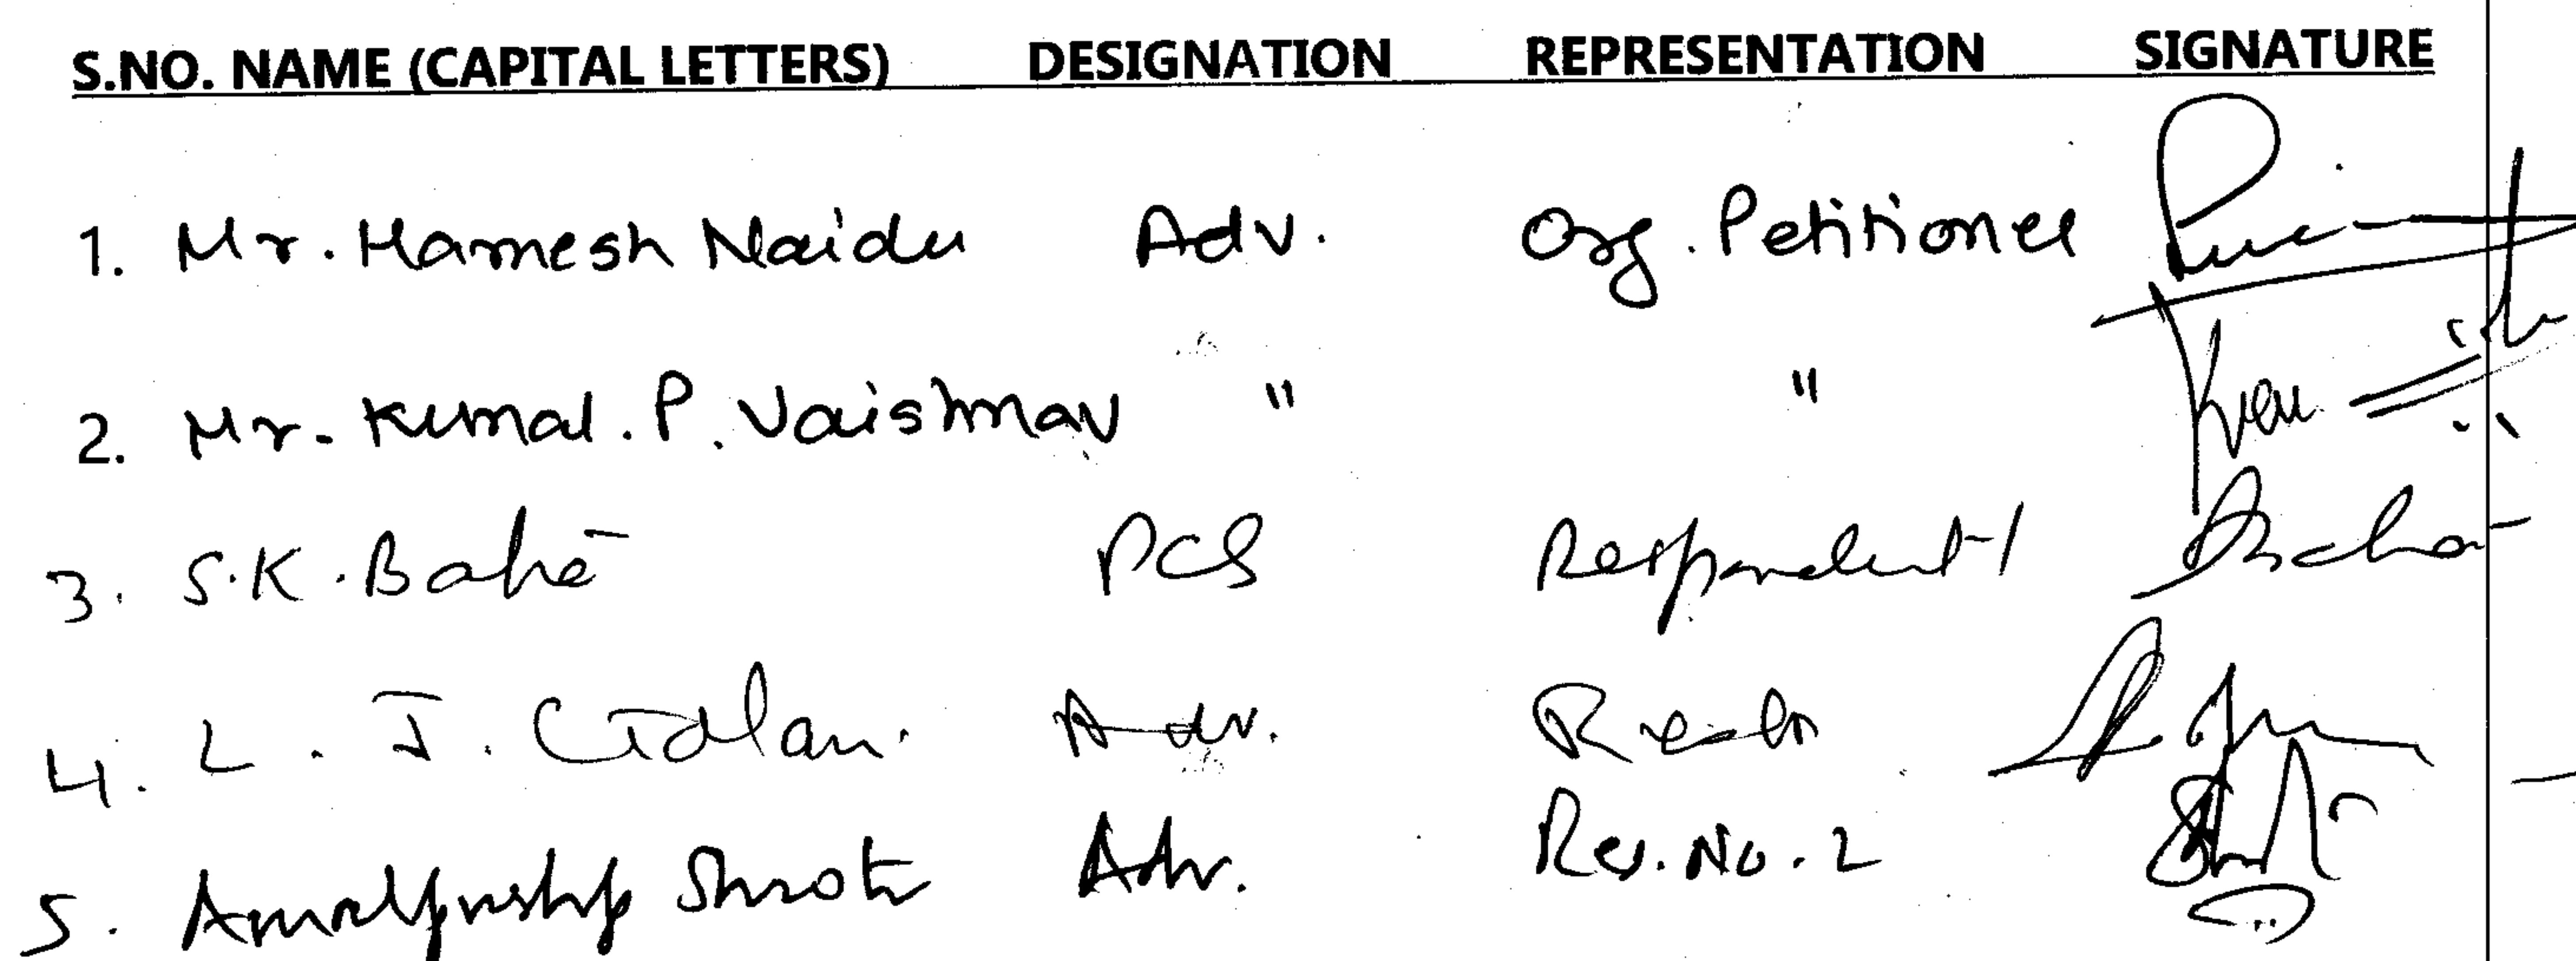 S.NO. NAME (CAPITAL LETTERS) DESIGNATION REPRESENTATION SIGNATURE
1. Mr. Harnesh Naidu Adv. Org. Petitioner
2. Mr. Kunal. P. Vaishnav " "
3. S.K. PCS Respondent-1
4. L. J. Adv.
5. Amalpushp Shroti Adv. Res. No. 2